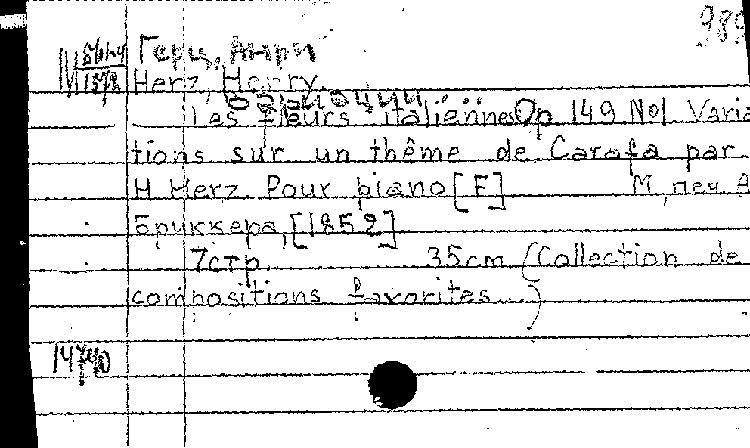 989
Герц, Анри
Herz, Henry.
Вариации
Les fleurs italiennes Op 149 No1 Varia
tions sur un thême de Carafa par
H Herz. Pour piano [F] М, печ А
Бриккера, [1852]
7стр. 35cm (Collection de
compositions favorites.)